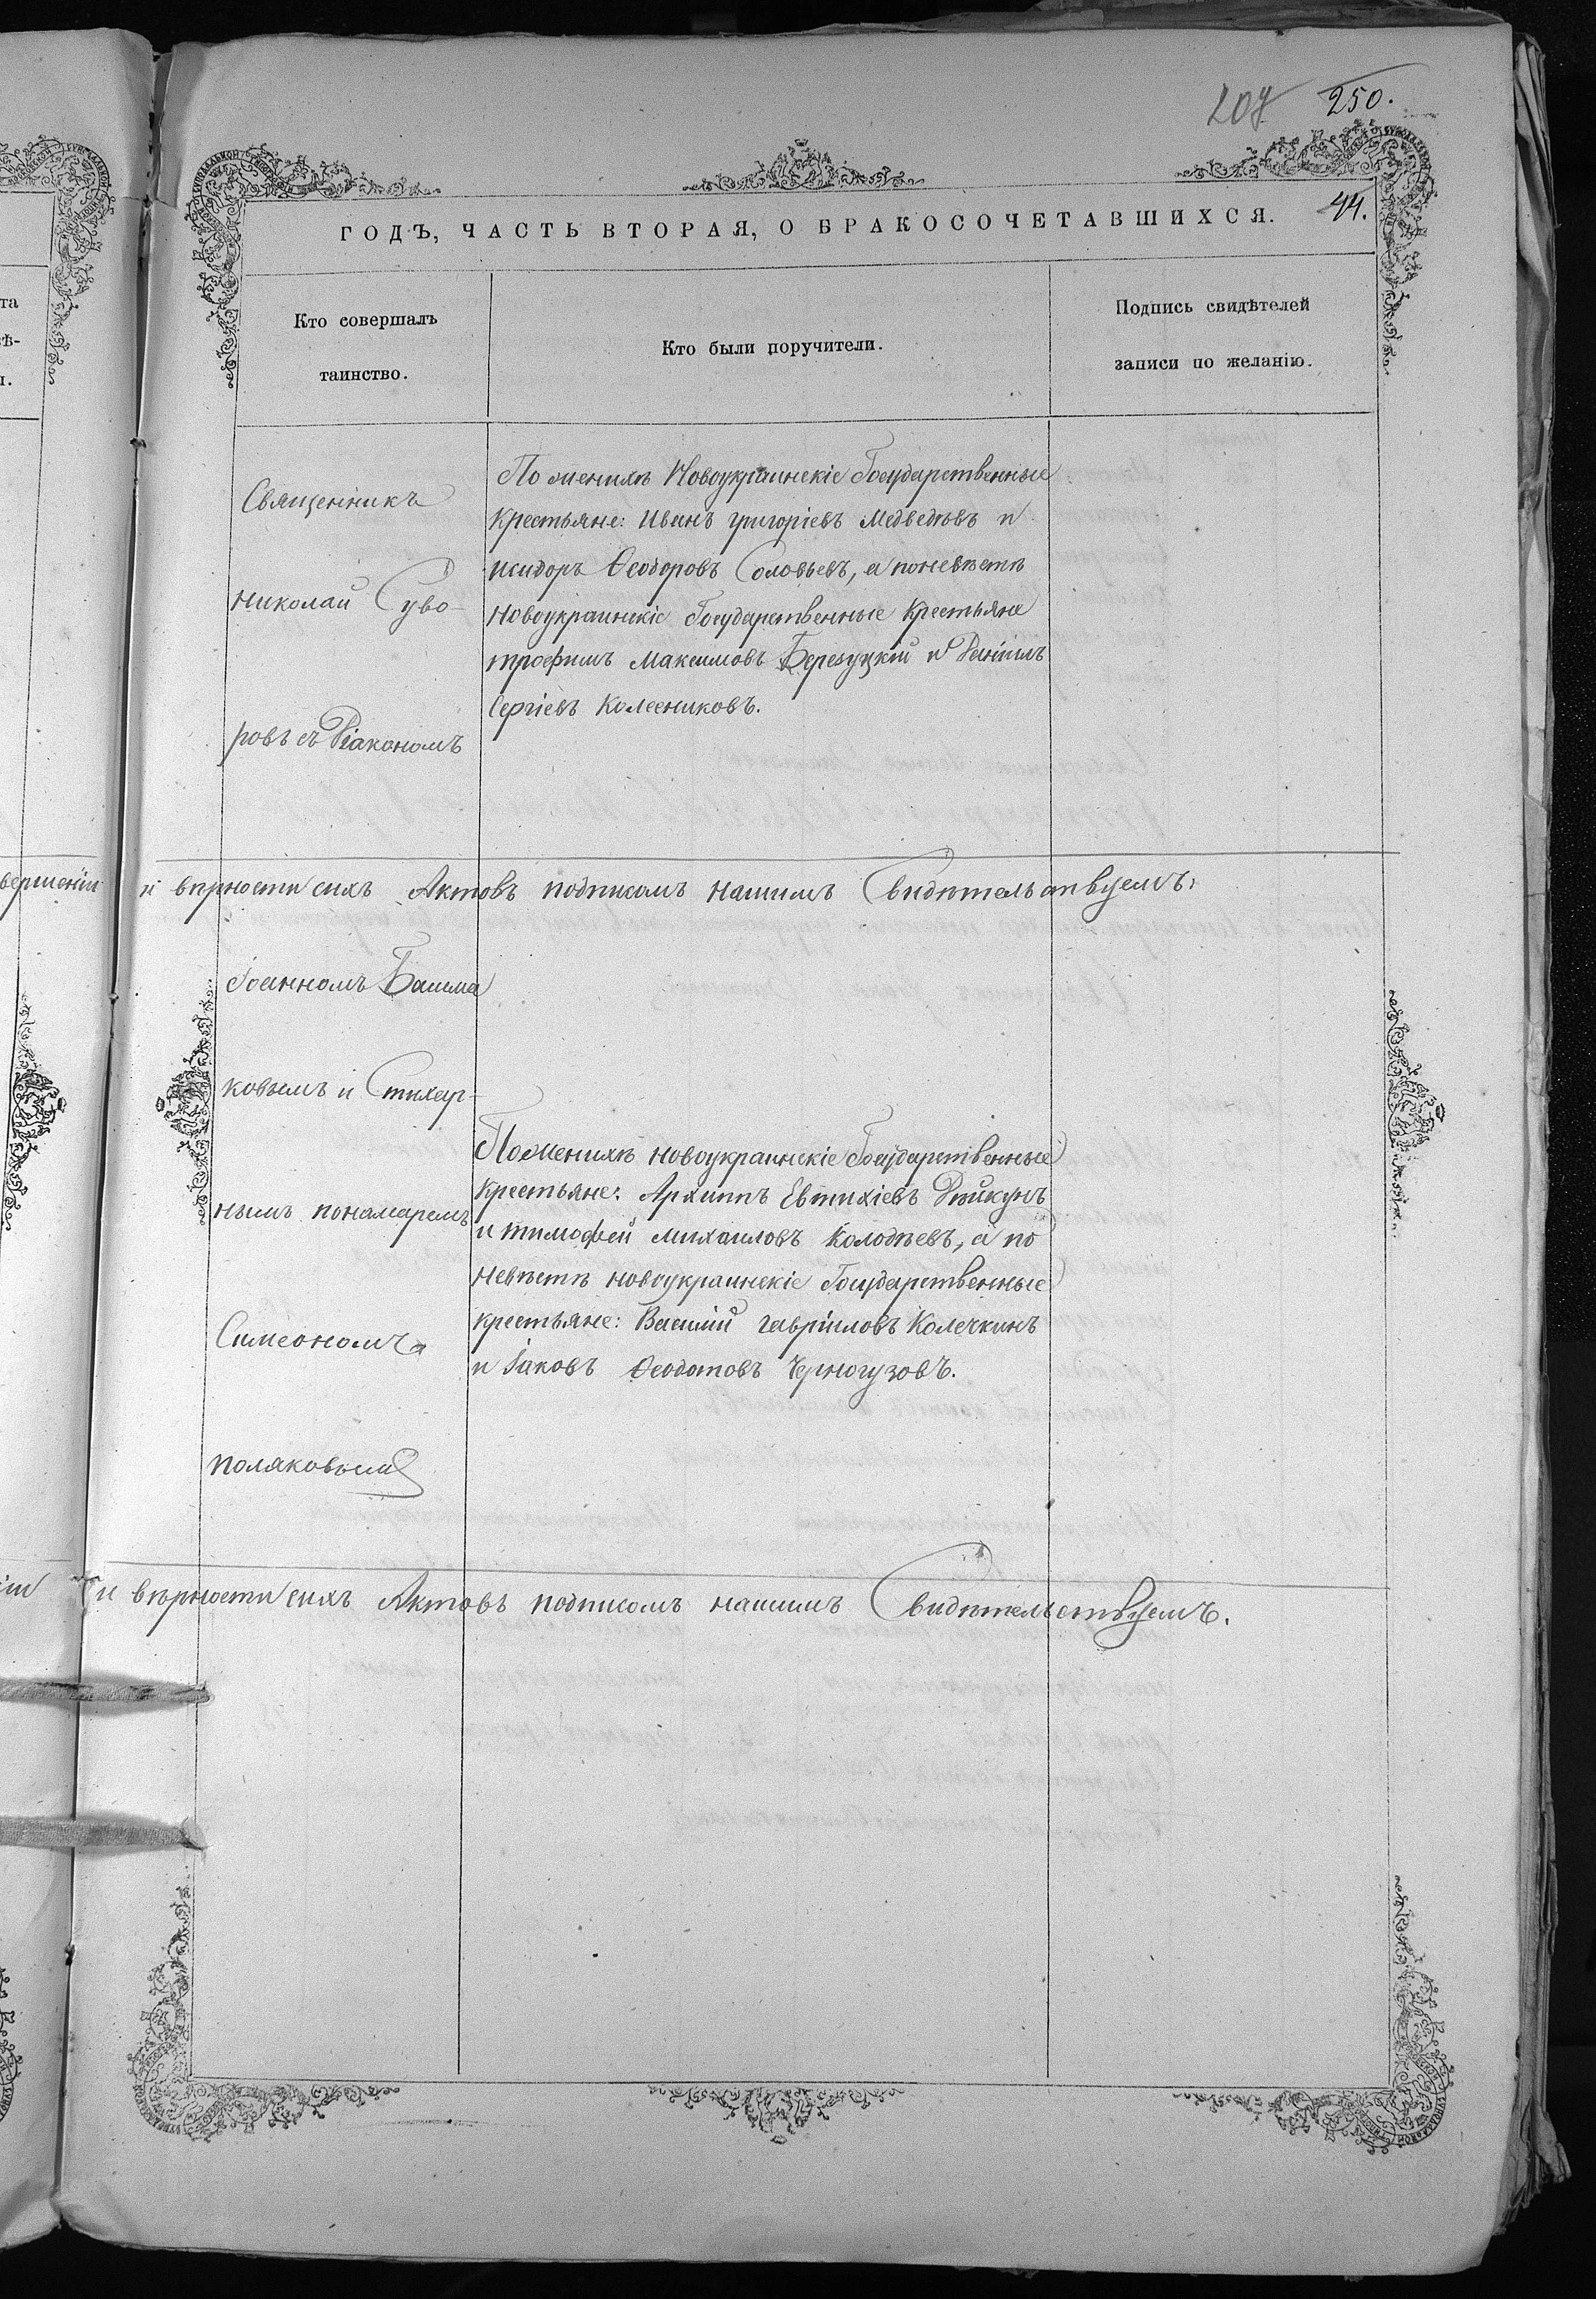 207 250.
ГОДЪ, ЧАСТЬ ВТОРАЯ, О БРАКОСОЧЕТАВШИХСЯ. 44.
Кто совершалъ
таинство.
Кто были поручители.
Подпись свидѣтелей
записи по желанію.
Священникъ
Николай Суво-
ровъ съ Діакономъ
По женихѣ Новоукраинскіе Государственные
Крестьяне: Иванъ григоріевъ Медведѣвъ и
исидоръ Ѳеодоровъ Соловьевъ, а поневѣстѣ
Новоукраинскіе Государственные Крестьяне
трофимъ Максимовъ Березуцкій и Даніилъ
Сергіевъ Колесниковъ.
вершеніи и вѣрности сихъ Актовъ подписомъ нашимъ Свидѣтельствуемъ:
Іоанномъ Башма
ковымъ и Стихар-
нымъ понамаремъ
Симеономъ
поляковымъ
Поженихѣ новоукраинскіе Государственные
Крестьяне: Архиппъ Евтихіевъ
и тимофей михаиловъ Колодѣевъ, а по
невѣстѣ новоукраинскіе Государственные
крестьяне: Василій гавріиловъ Колечкинъ
и Іаковъ Ѳеодотовъ Черногузовъ.
и вѣрности сихъ Актовъ подписомъ нашимъ Свидѣтельствуемъ.